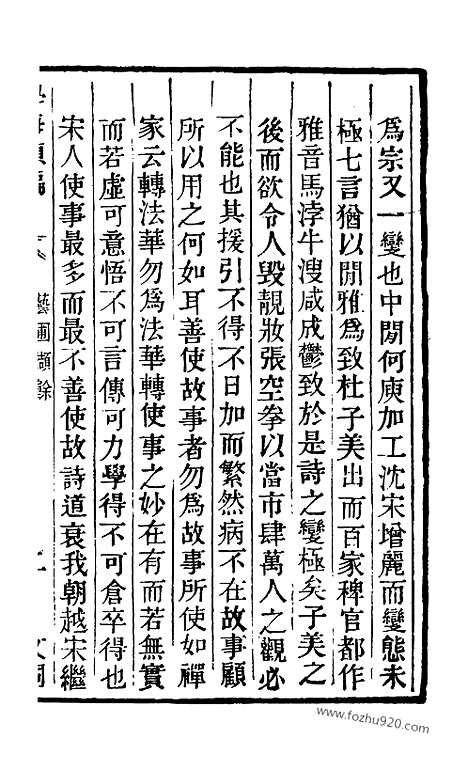 爲宗又一變也中閒何庾加工沈宋增麗而變態未
極七言猶以閒雅爲致杜子美出而百家稗官都作
雅音馬浡牛溲咸成鬱致於是詩之變極矣子美之
後而欲令人毀靚妝張空拳以當市肆萬人之觀必
不能也其援引不得不日加而繁然病不在故事顧
所以用之何如耳善使故事者勿爲故事所使如禪
家云轉法華勿爲法華轉使事之妙在有而若無實
而若虛可意悟不可言傳可力學得不可倉卒得也
宋人使事最多而最不善使故詩道衰我朝越宋繼
藝圃擷餘
www.fozhu920.com